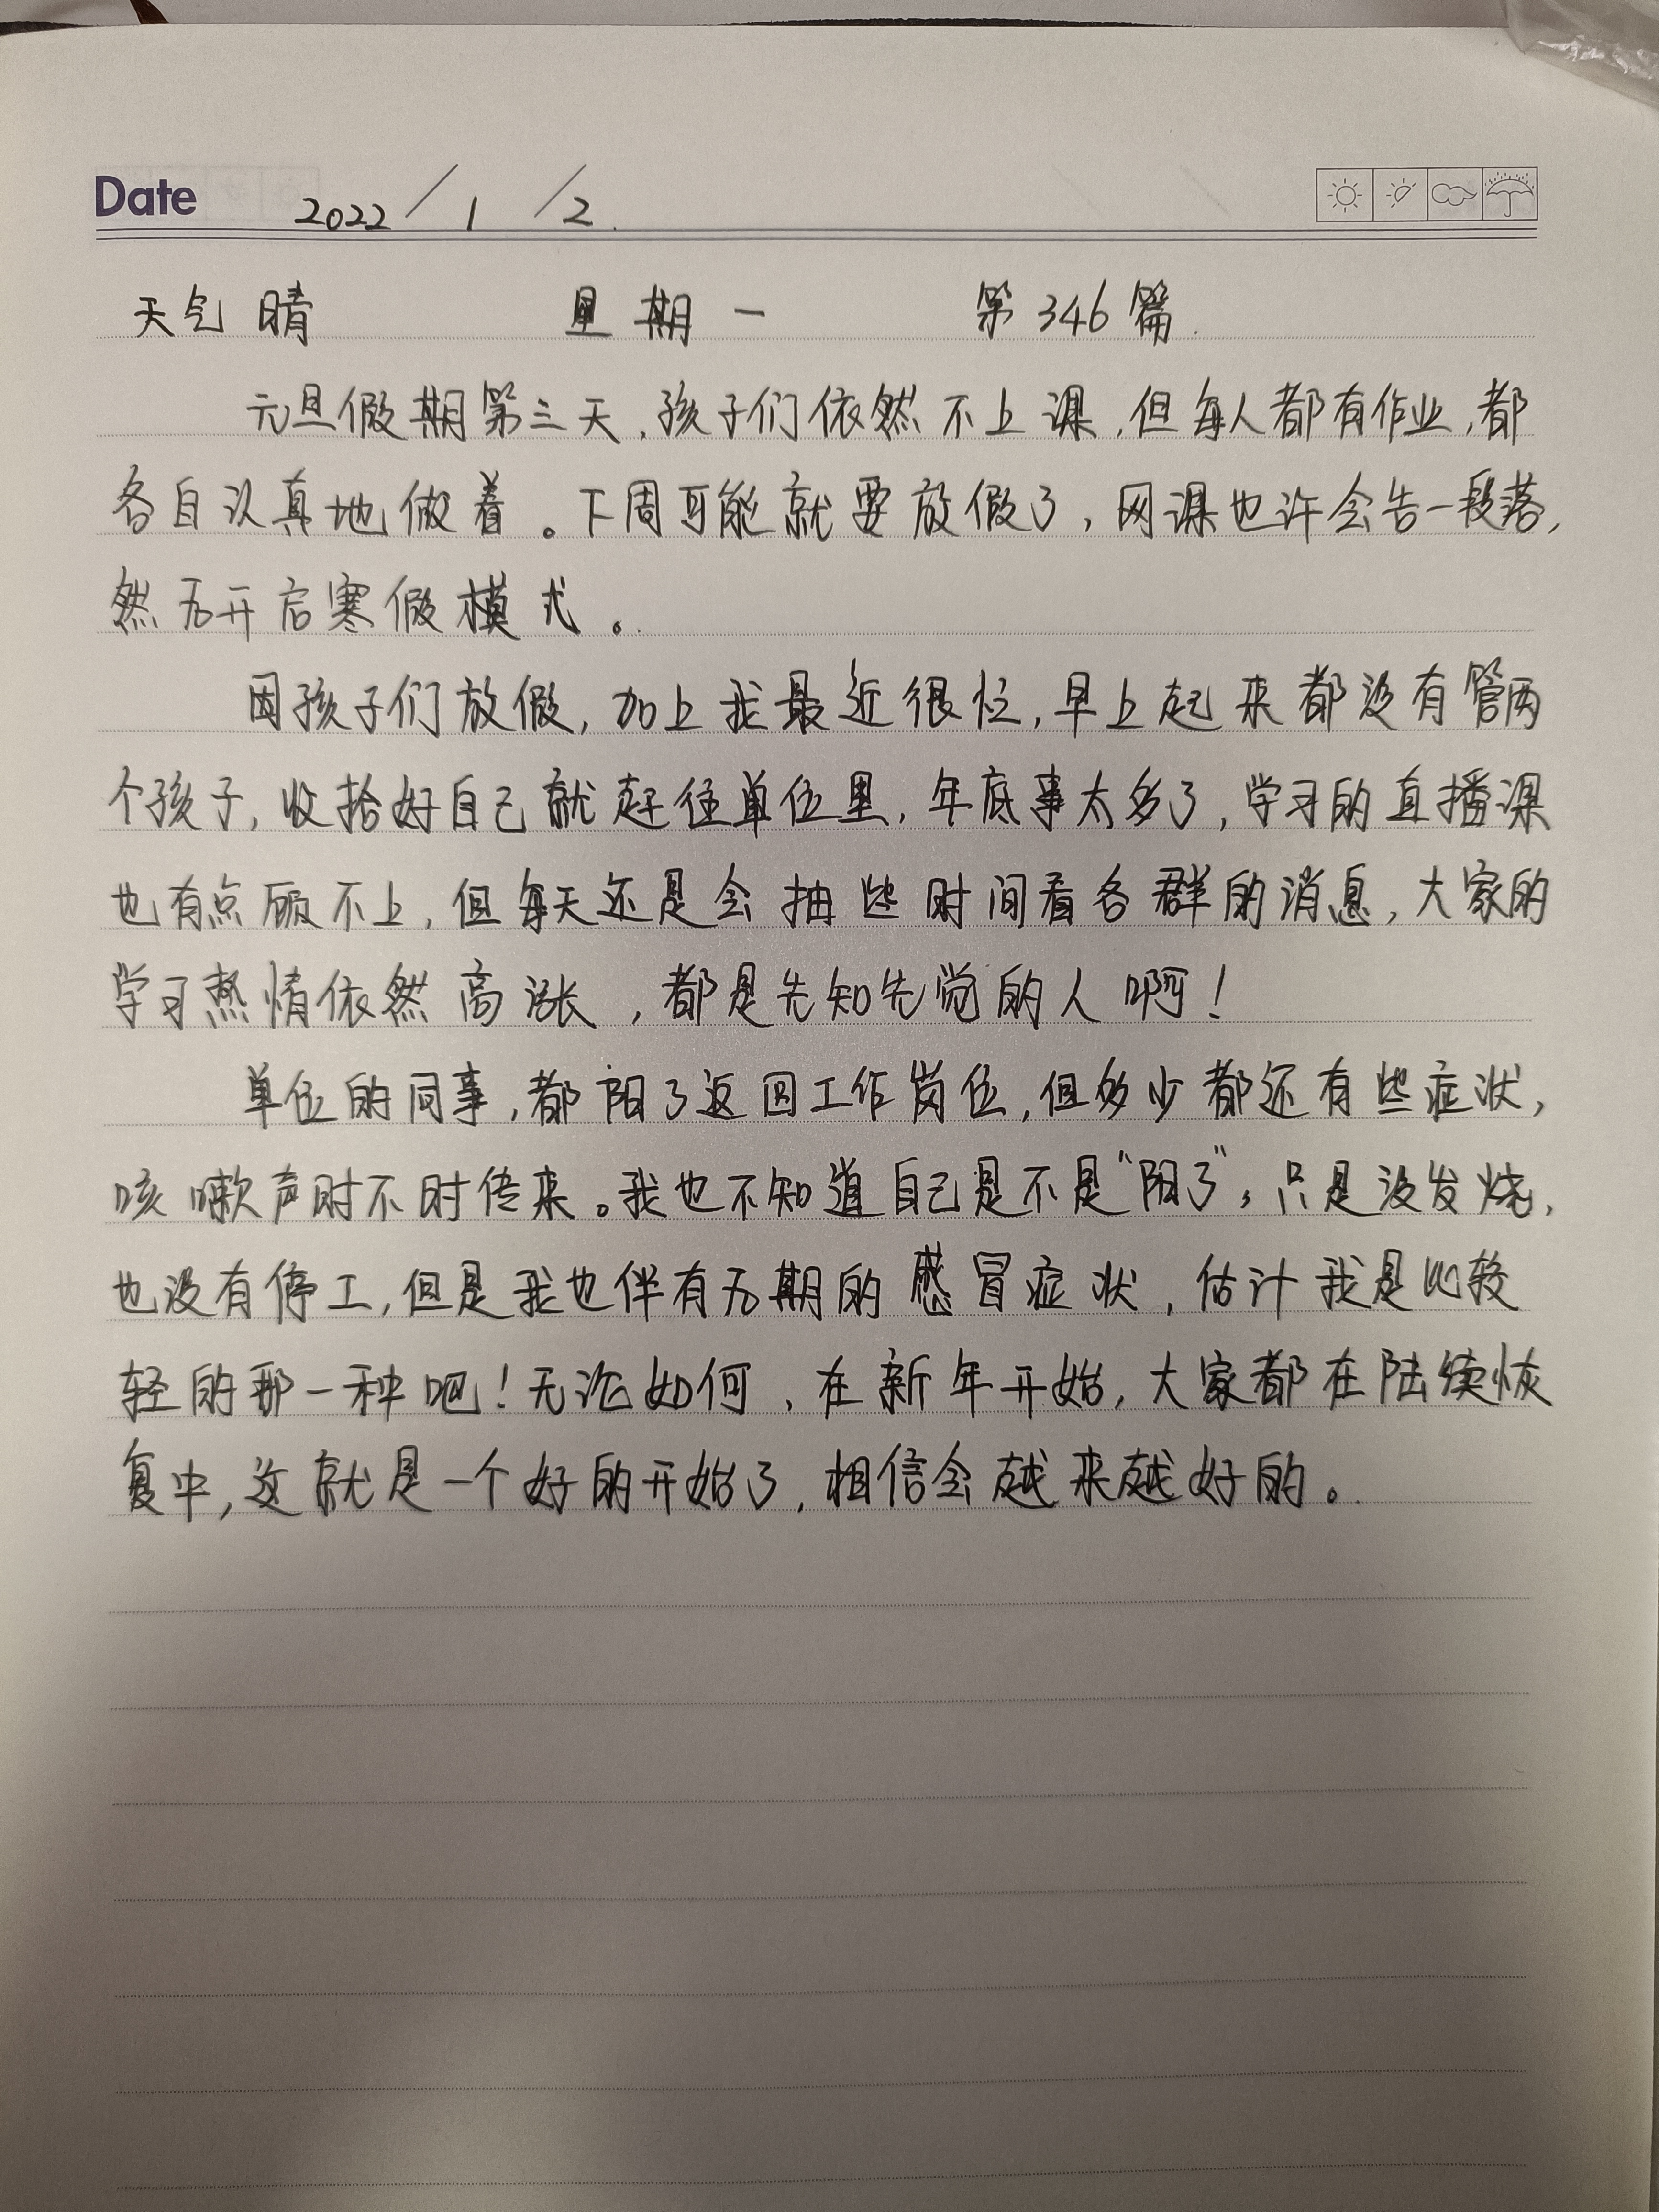 Date 2022/1/2.
天气 晴 星期一 第346篇.
元旦假期第三天,孩子们依然不上课,但每人都有作业,都
各自认真地做着。下周可能就要放假了,网课也许会告一段落,
然后开启寒假模式。
因孩子们放假,加上我最近很忙,早上起来都没有管两
个孩子,收拾好自己就赶往单位里,年底事太多了,学习的直播课
也有点顾不上,但每天还是会抽些时间看各群的消息,大家的
学习热情依然高涨,都是先知先觉的人啊!
单位的同事,都阳了返回工作岗位,但多少都还有些症状,
咳嗽声时不时传来。我也不知道自己是不是“阳了”,只是没发烧,
也没有停工,但是我也伴有后期的感冒症状,估计我是比较
轻的那一种吧!无论如何,在新年开始,大家都在陆续恢
复中,这就是一个好的开始了,相信会越来越好的。